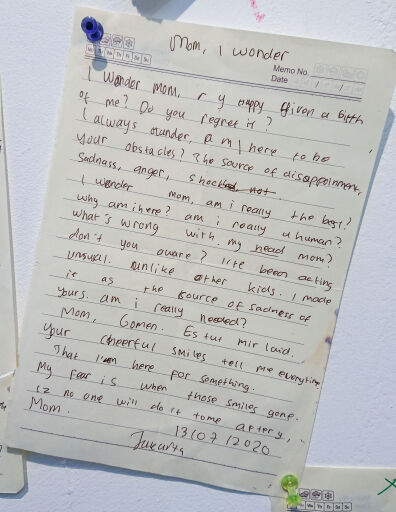 Mom, I wonder
Memo No.
Date / /
Mo Tu We Th Fr Sa Su
I Wonder Mom, r y Happy Given a birth
of me? Do you regret it?
I always wunder, a m I here to be
your obstacles? The source of disappoinment,
Sadness, anger, shocked, not
I wonder mom, am i really the best?
why am ihere? am i really a human?
what's wrong with my head mom?
don't you aware? I've been acting
unsual. unlike other kids. I made
it as the source of sadness of
yours. am i really needed?
Mom, Gomen. Es tut mir laid.
Your cheerful smiles tell me everything
That I'am here for something.
My fear is when those smiles gone.
is no one will do it tome after y,
Mom.
13/07/2020
Jakarta
Mo Tu We Th Fr Sa Su